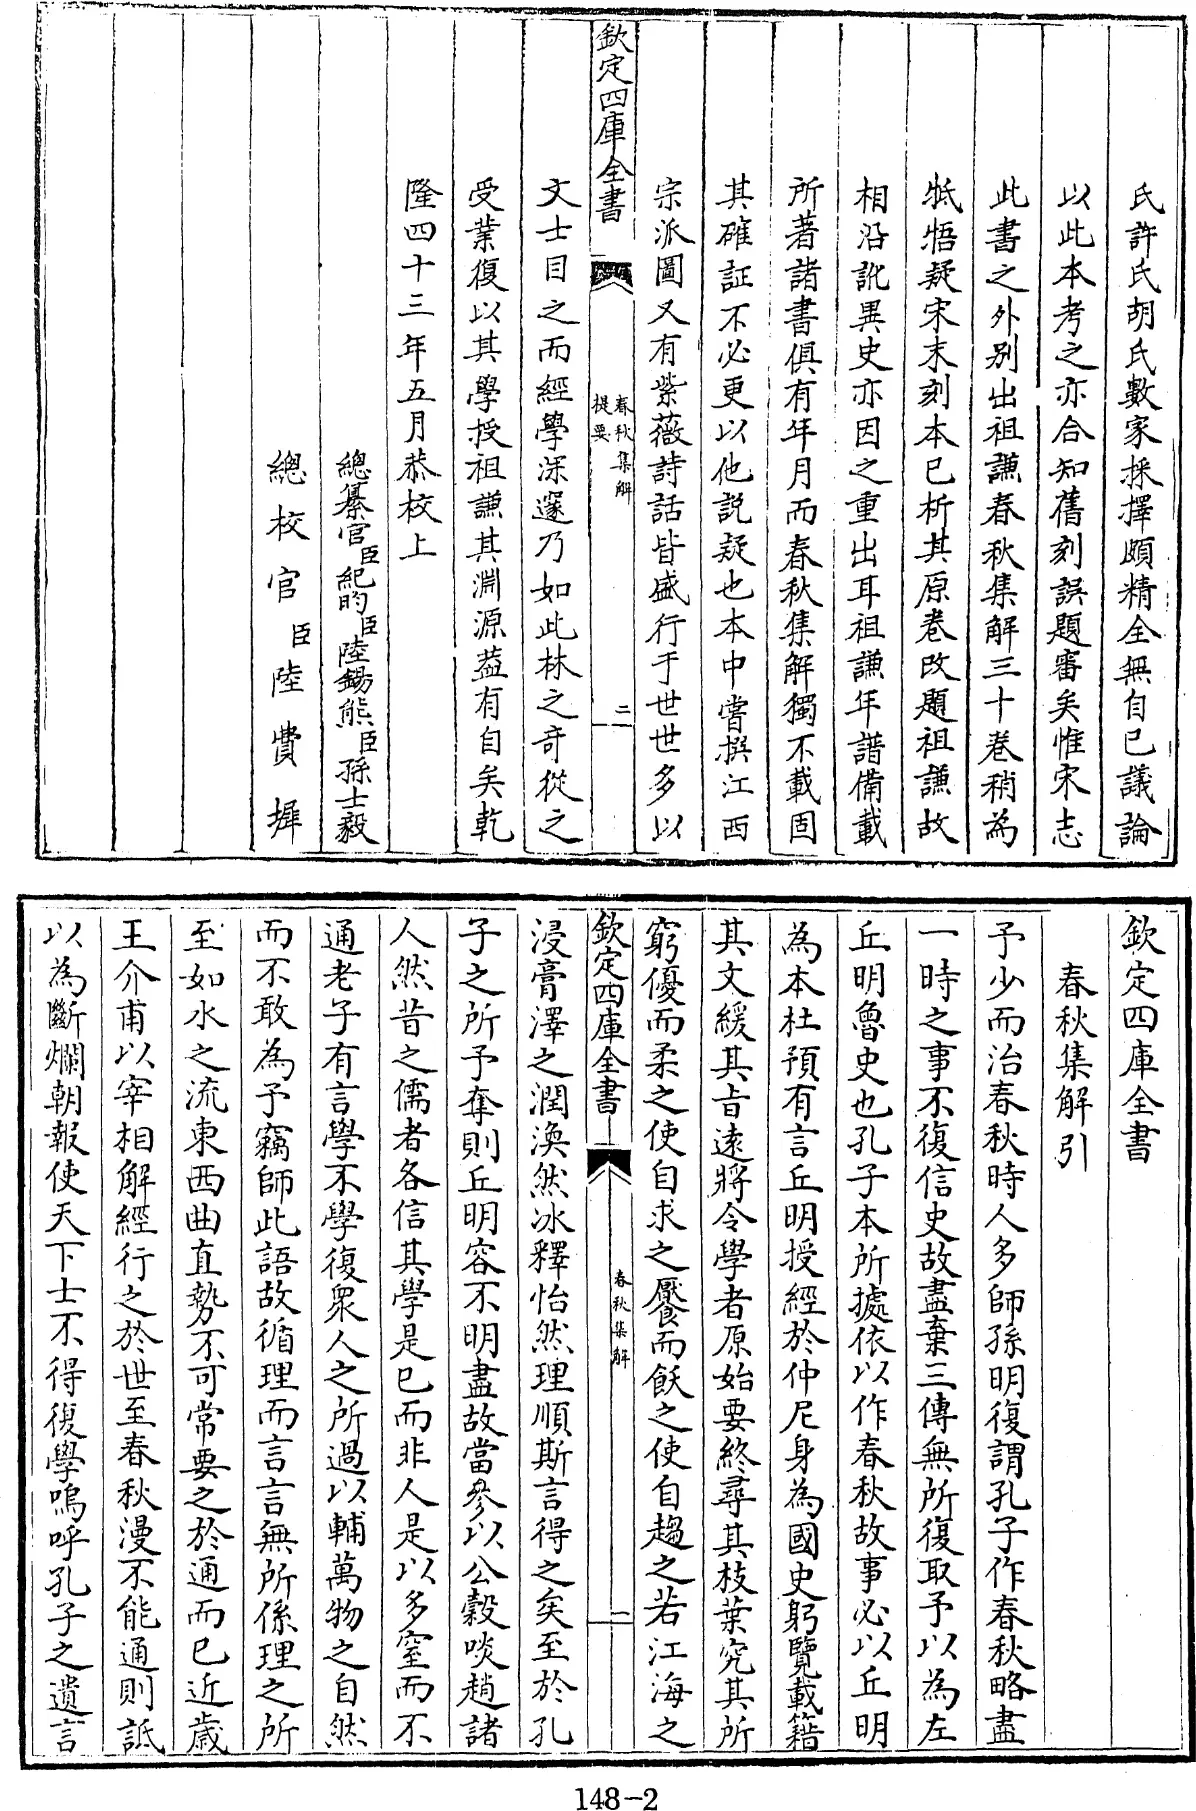 氏許氏胡氏數家採擇頗精全無自已議論
以此本考之亦合知舊刻誤題審矣惟宋志
此書之外別出祖謙春秋集解三十卷稍為
牴牾疑宋末刻本已析其原卷改題祖謙故
相沿訛異史亦因之重出耳祖謙年譜備載
所著諸書俱有年月而春秋集解獨不載固
其確証不必更以他說疑也本中嘗撰江西
宗派圖又有紫薇詩話皆盛行于世世多以
欽定四庫全書
春秋集解
提要
二
文士目之而經學深邃乃如此林之奇從之
受業復以其學授祖謙其淵源葢有自矣乾
隆四十三年五月恭校上
總纂官臣紀昀臣陸錫熊臣孫士毅
總校官臣陸費墀
欽定四庫全書
春秋集解引
予少而治春秋時人多師孫明復謂孔子作春秋略盡
一時之事不復信史故盡棄三傳無所復取予以為左
丘明魯史也孔子本所據依以作春秋故事必以丘明
為本杜預有言丘明授經於仲尼身為國史躬覽載籍
其文緩其旨遠將令學者原始要終尋其枝葉究其所
窮優而柔之使自求之饜而飫之使自趨之若江海之
欽定四庫全書
春秋集解
一
浸膏澤之潤渙然冰釋怡然理順斯言得之矣至於孔
子之所予奪則丘明容不明盡故當參以公穀啖趙諸
人然昔之儒者各信其學是已而非人是以多窒而不
通老子有言學不學復衆人之所過以輔萬物之自然
而不敢為予竊師此語故循理而言言無所係理之所
至如水之流東西曲直勢不可常要之於通而已近歲
王介甫以宰相解經行之於世至春秋漫不能通則詆
以為斷爛朝報使天下士不得復學嗚呼孔子之遺言
148-2